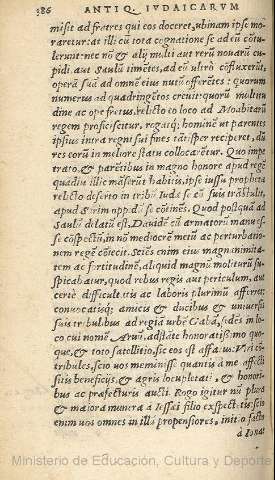 386 ANTIQ. IVDAICARVM
misit ad fratres qui eos doceret, ubinam ipse mo-
raretur: at illi cũ tota cognatione se ad eũ cõtu-
lerunt: nec nõ & alij multi aut rerũ nouarũ cu-
pidi, aut Saulũ timẽtes, ad eũ ultrò cõfluxerũt,
operã suã ad omnẽ eius nutũ offerẽtes: quorum
numerus ad quadringẽtos creuit: quorũ multitu
dine ac ope fretus, relicto eo loco ad Moabitarũ
regem proficiscitur, regatq; hominẽ ut parentes
ipsius intra regni sui fines tãtisper reciperet, du
res eorũ in meliore statu collocaretur. Quo impe
trato, & parẽtibus in magno honore apud regẽ
quãdiu illic mãserũt habitis, ipse iussu prophetæ
relicto deserto in tribũ Iudæ se cũ suis trãstulit,
apud Sarim oppidũ se cõtinẽs. Quod postquã ad
Saulũ delatũ est, Dauidẽ cũ armatorũ manu es-
se cõspectũ, in nõ mediocrẽ metũ ac perturbatio-
nem regẽ cõiecit. Sciẽs enim eius magnanimita-
tem ac fortitudinẽ, aliquid magnũ moliturũ su-
spicabatur, quod rebus regijs aut periculum, aut
certè difficultatis ac laboris plurimũ afferret:
conuocatisq; amicis & ducibus & uniuersis
suis tribulibus ad regiã urbẽ Gabã, sedẽs in lo-
co cui nomẽ Aruũ, adstãte honoratissimo quo-
que, & toto satellitio, sic eos est affatus. Viri cõ-
tribules, scio uos meminisse quantis à me affecti
sitis beneficijs, & agris locupletati, & honori-
bus ac præfecturis aucti. Rogo igitur nũ plura
& maiora munera à Iessæi filio expectetis: scio
enim uos omnes in illũ propensiores, inito facto
à Iona-
Ministerio de Educación, Cultura y Deporte